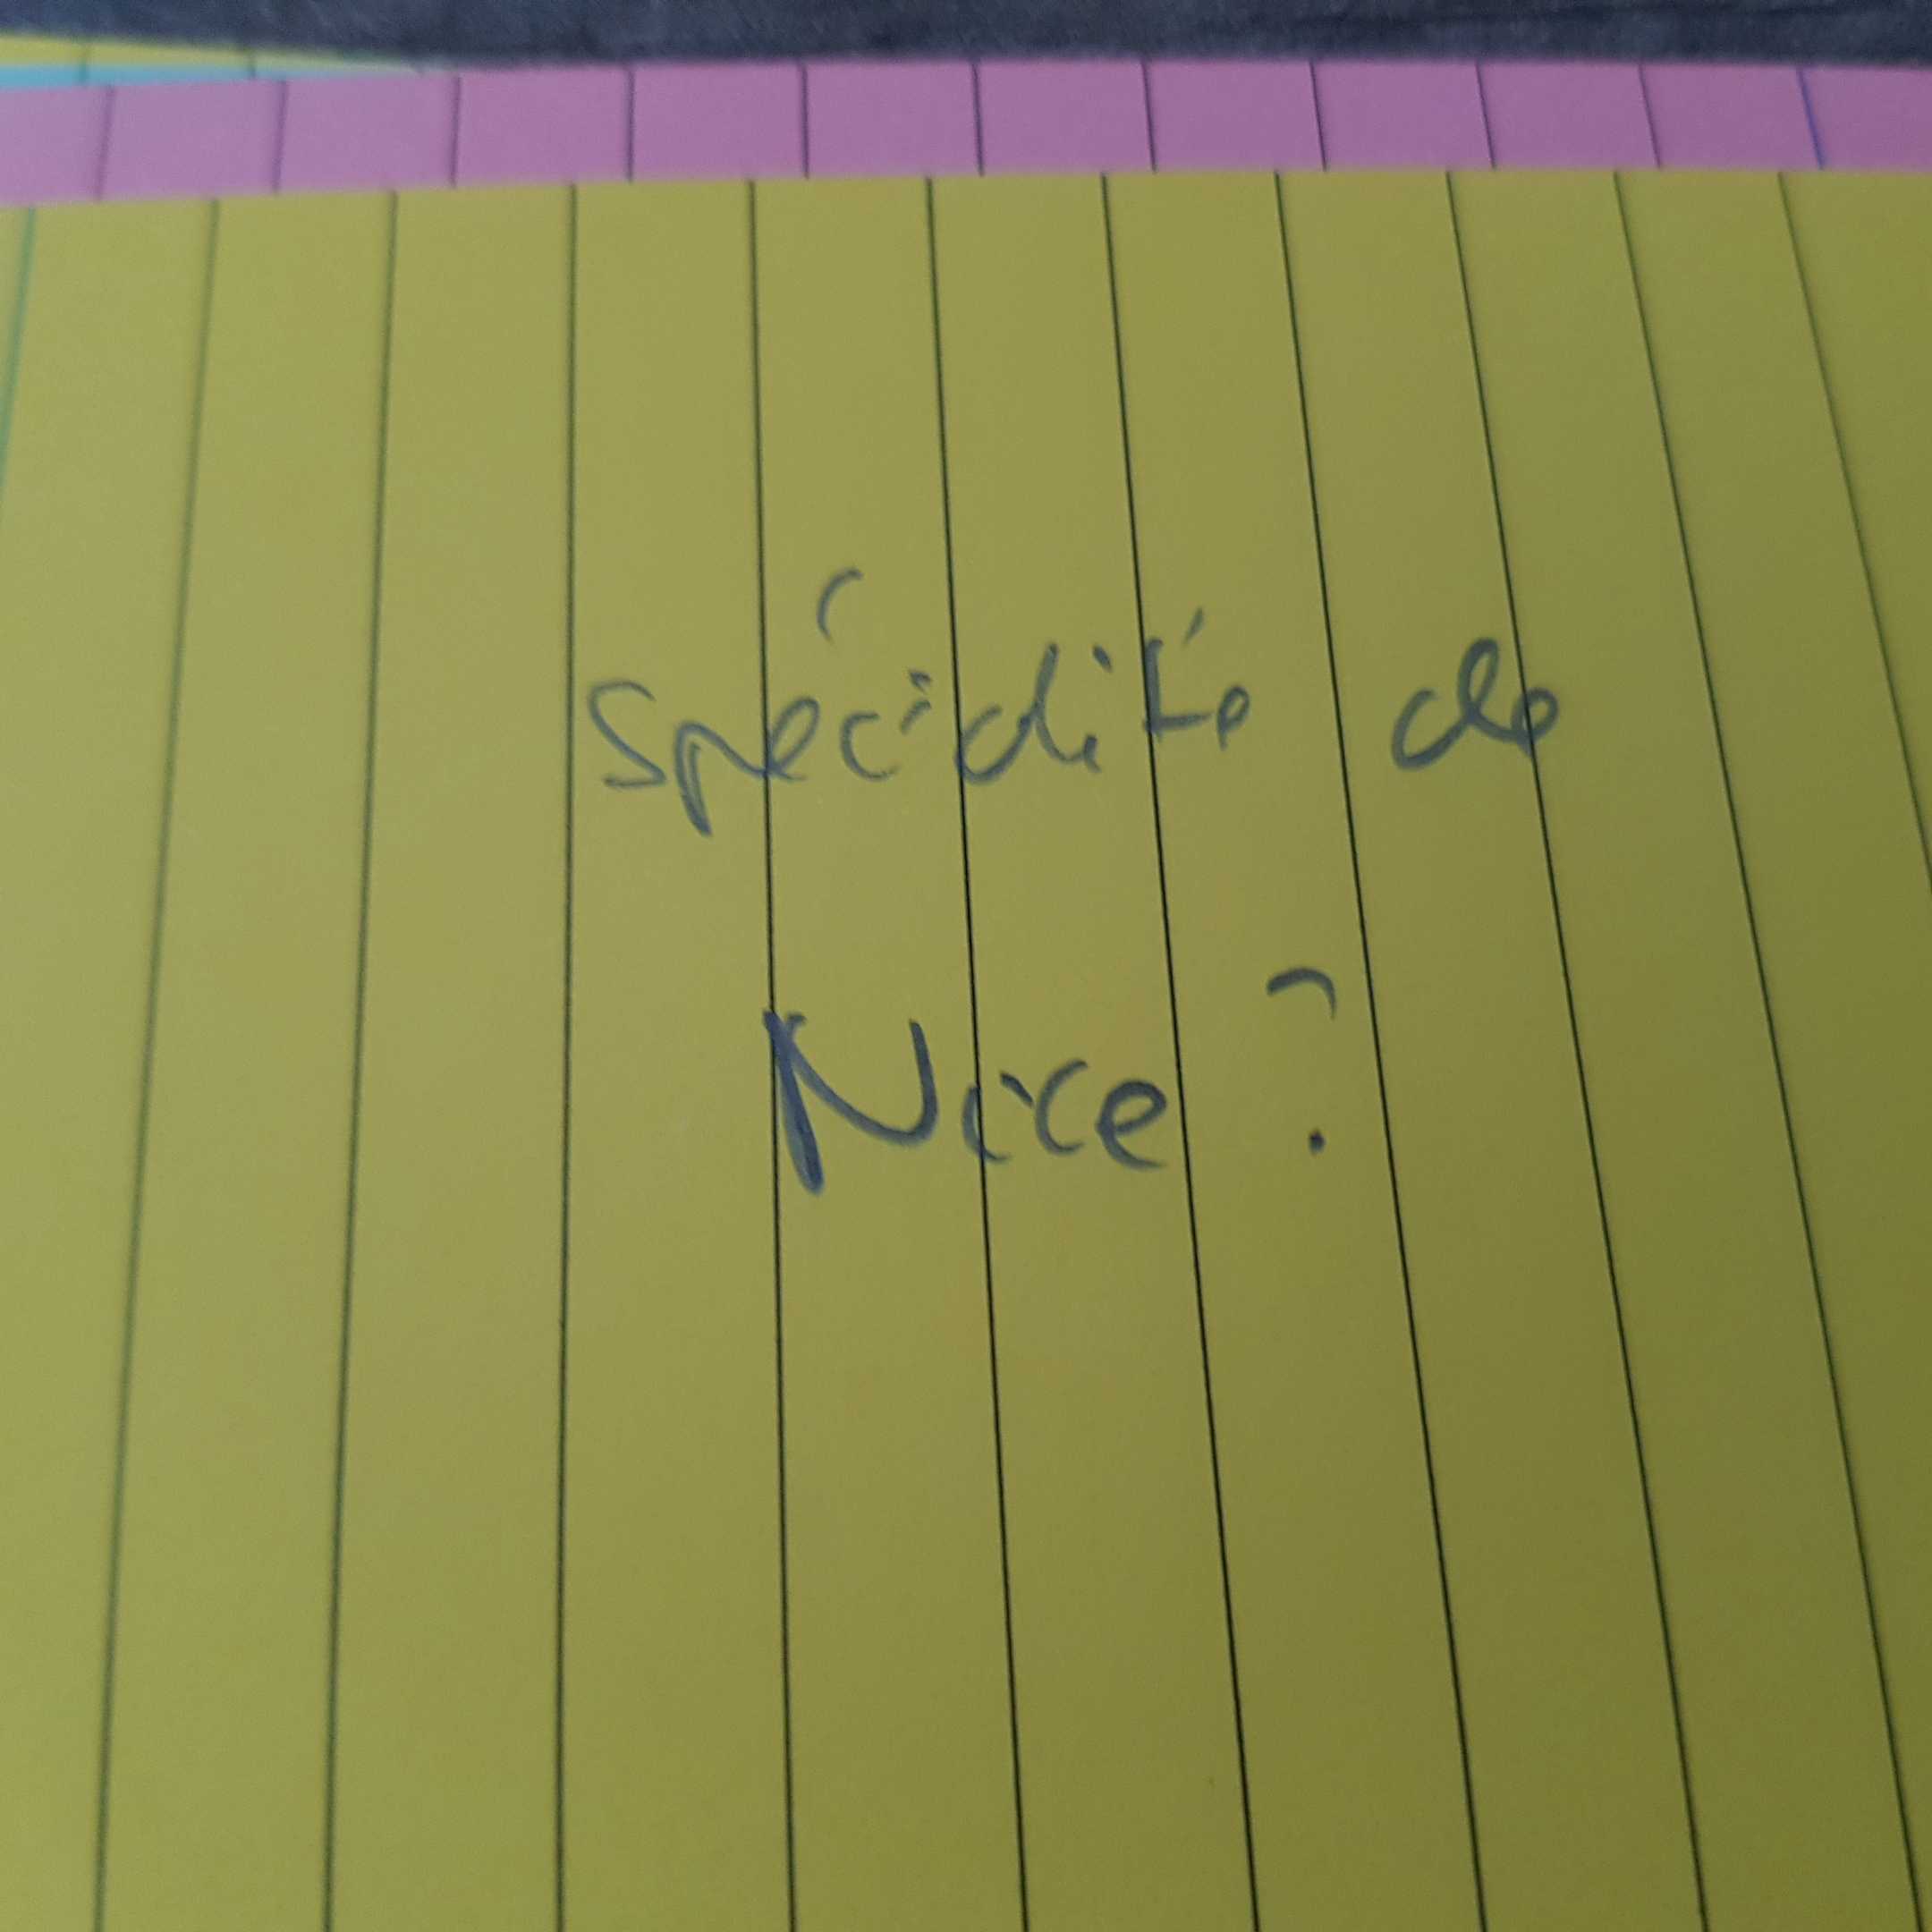 Spécialité de
Nice ?